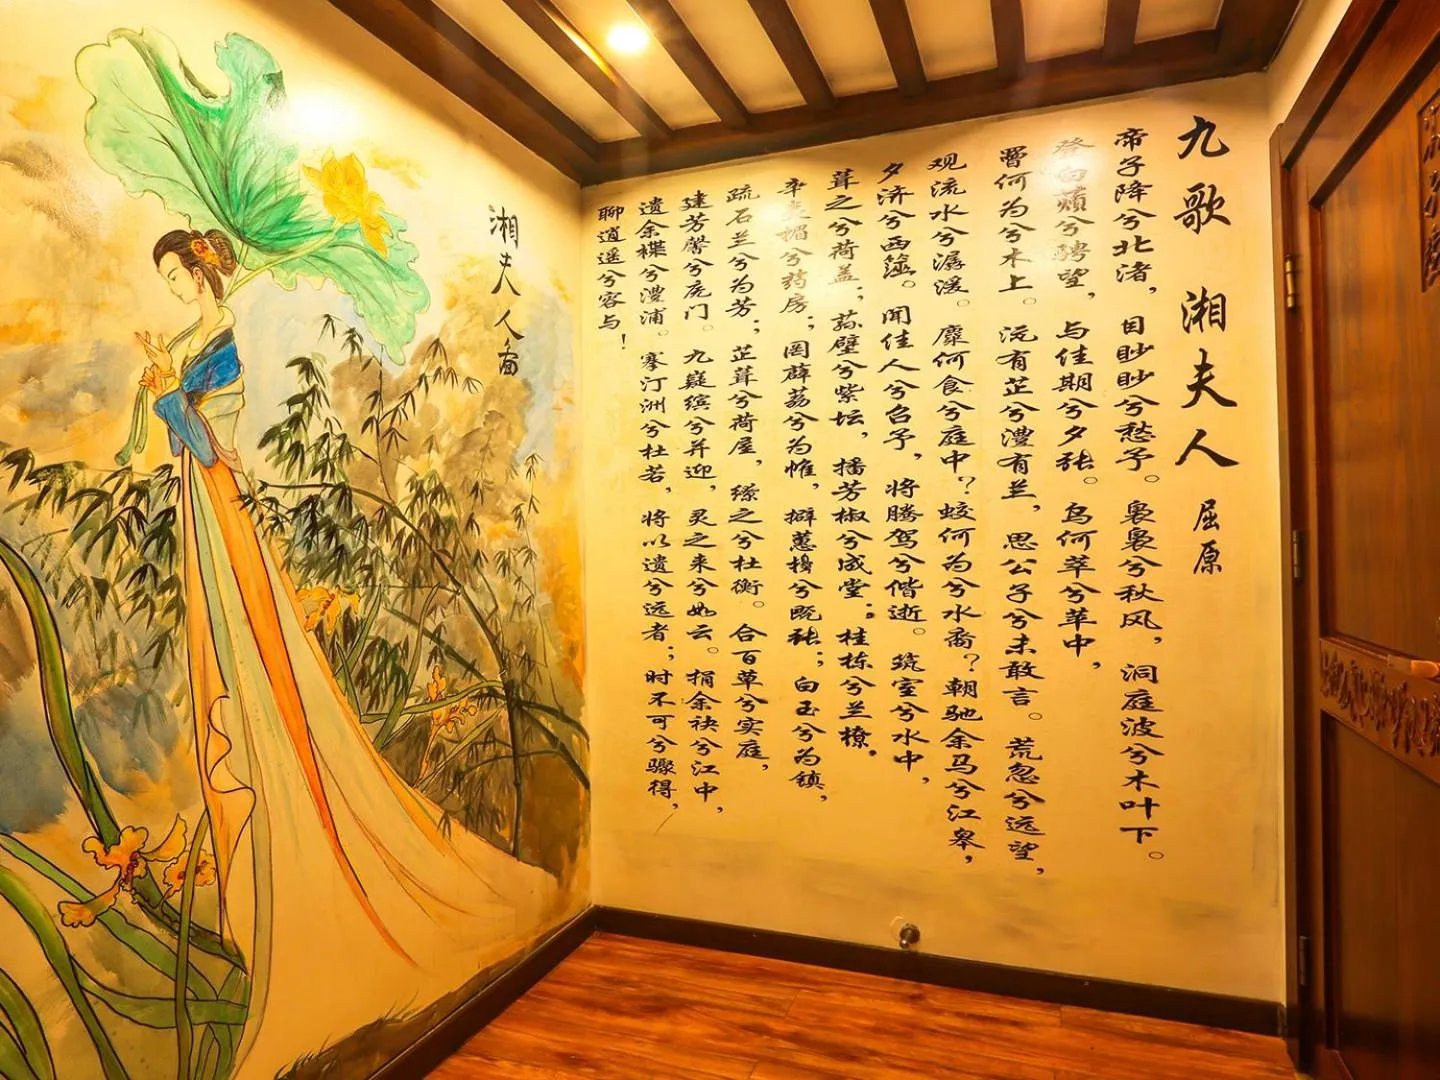 九歌 湘夫人 屈原
帝子降兮北渚，目眇眇兮愁予。袅袅兮秋风，洞庭波兮木叶下。
登白薠兮骋望，与佳期兮夕张。鸟何萃兮苹中，
罾何为兮木上。沅有芷兮澧有兰，思公子兮未敢言。荒忽兮远望，
观流水兮潺湲。麋何食兮庭中？蛟何为兮水裔？朝驰余马兮江皋，
夕济兮西澨。闻佳人兮召予，将腾驾兮偕逝。筑室兮水中，
葺之兮荷盖；荪壁兮紫坛，播芳椒兮成堂；桂栋兮兰橑，
辛夷楣兮药房；罔薜荔兮为帷，擗蕙櫋兮既张；白玉兮为镇，
疏石兰兮为芳；芷葺兮荷屋，缭之兮杜衡。合百草兮实庭，
建芳馨兮庑门。九嶷缤兮并迎，灵之来兮如云。捐余袂兮江中，
遗余褋兮澧浦。搴汀洲兮杜若，将以遗兮远者；时不可兮骤得，
聊逍遥兮容与！
湘夫人